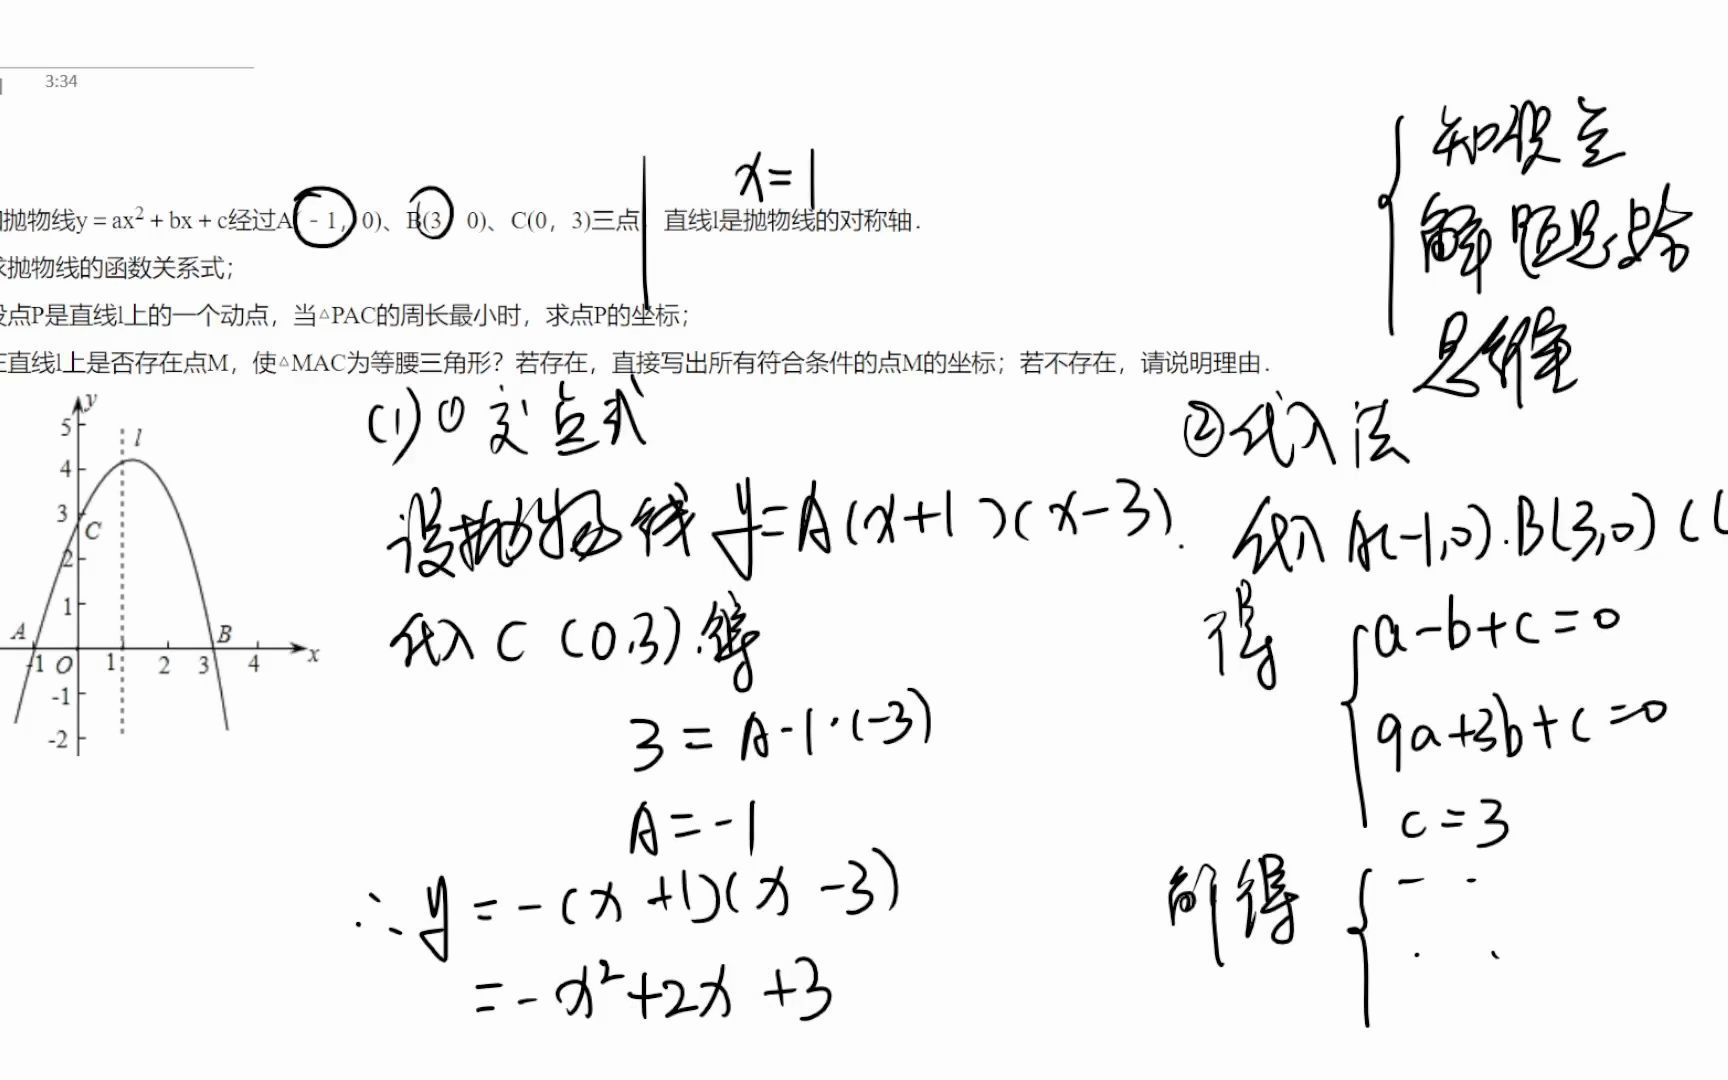 3:34
x=1
抛物线y=ax²+bx+c经过A(-1, 0)、B(3 0)、C(0, 3)三点 直线l是抛物线的对称轴.
抛物线的函数关系式;
点P是直线l上的一个动点, 当△PAC的周长最小时, 求点P的坐标;
直线l上是否存在点M, 使△MAC为等腰三角形? 若存在, 直接写出所有符合条件的点M的坐标; 若不存在, 请说明理由.
知识点
解题思路
思维量
y
5
l
4
3
C
2
1
A
B
-1 O 1 2 3 4 x
-1
-2
(1) ① 交点式
设抛物线 y=A(x+1)(x-3).
代入 C (0,3).得
3=A·1·(-3)
A=-1
∴y=-(x+1)(x-3)
=-x²+2x+3
②代入法
代入 A(-1,0).B(3,0) C(
得
a-b+c=0
9a+3b+c=0
c=3
解得